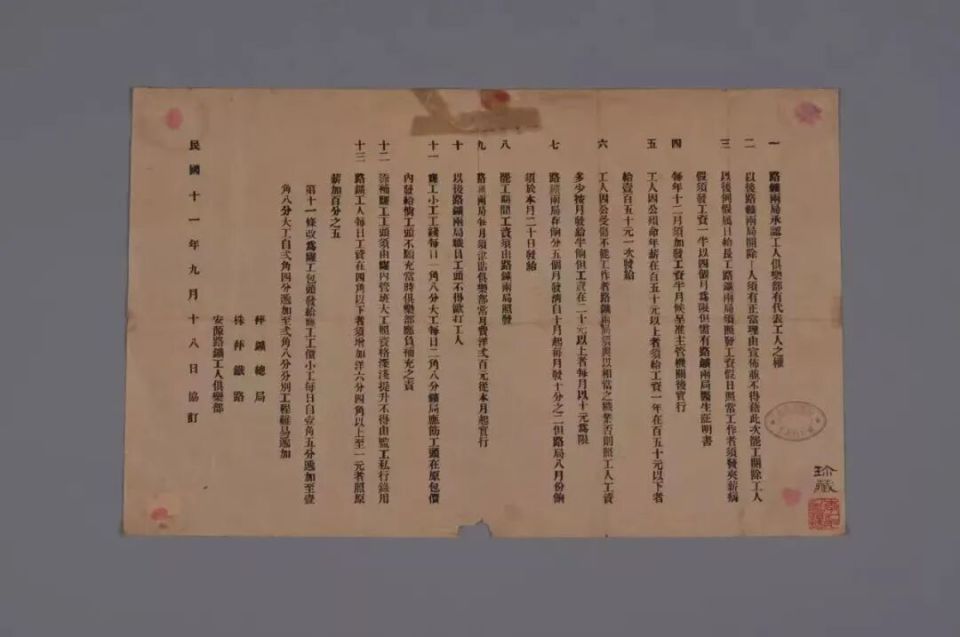 一 路鑛兩局承認工人俱樂部有代表工人之權
二 以後路鑛兩局開除工人須有正當理由宣佈並不得藉此次罷工開除工人
三 以後例假屬日給長工路鑛兩局須照發工資假日照常工作者須發夾薪病
假須發工資一半以四個月為限但需有路鑛兩局醫生証明書
四 每年十二月須加發工資半月候呈准主管機關後實行
五 工人因公殞命年薪在百五十元以上者須給工資一年在百五十元以下者
給壹百五十元一次發給
六 工人因公受傷不能工作者路鑛兩局須與以相當之職業否則照工人工資
多少按月發給半餉但工資在二十元以上者每月以十元為限
七 路鑛兩局存餉分五個月發清自十月起每月發十分之二但路局八月份餉
須於本月二十日發給
八 罷工期間工資須由路鑛兩局照發
九 路鑛兩局每月須津貼俱樂部常月費洋弍百元從本月起實行
十 以後路鑛兩局職員工頭不得毆打工人
十一 窿工小工工錢每日一角八分大工每日二角八分鑛局應飭工頭在原包價
內發給惟工頭不願充當時俱樂部應負補充之責
十二 添補窿工工頭須由窿內管班大工照資格深淺提升不得由監工私行錄用
十三 路鑛工人每日工資在四角以下者須增加洋六分四角以上至一元者照原
薪加百分之五
第十一條改為窿工包頭發給窿工工價小工每日自壹角五分遞加至壹
角八分大工自弍角四分遞加至弍角八分分別工程難易遞加
萍鑛總局
株萍鐵路
安源路鑛工人俱樂部
民國十一年九月十八日協訂
珍藏